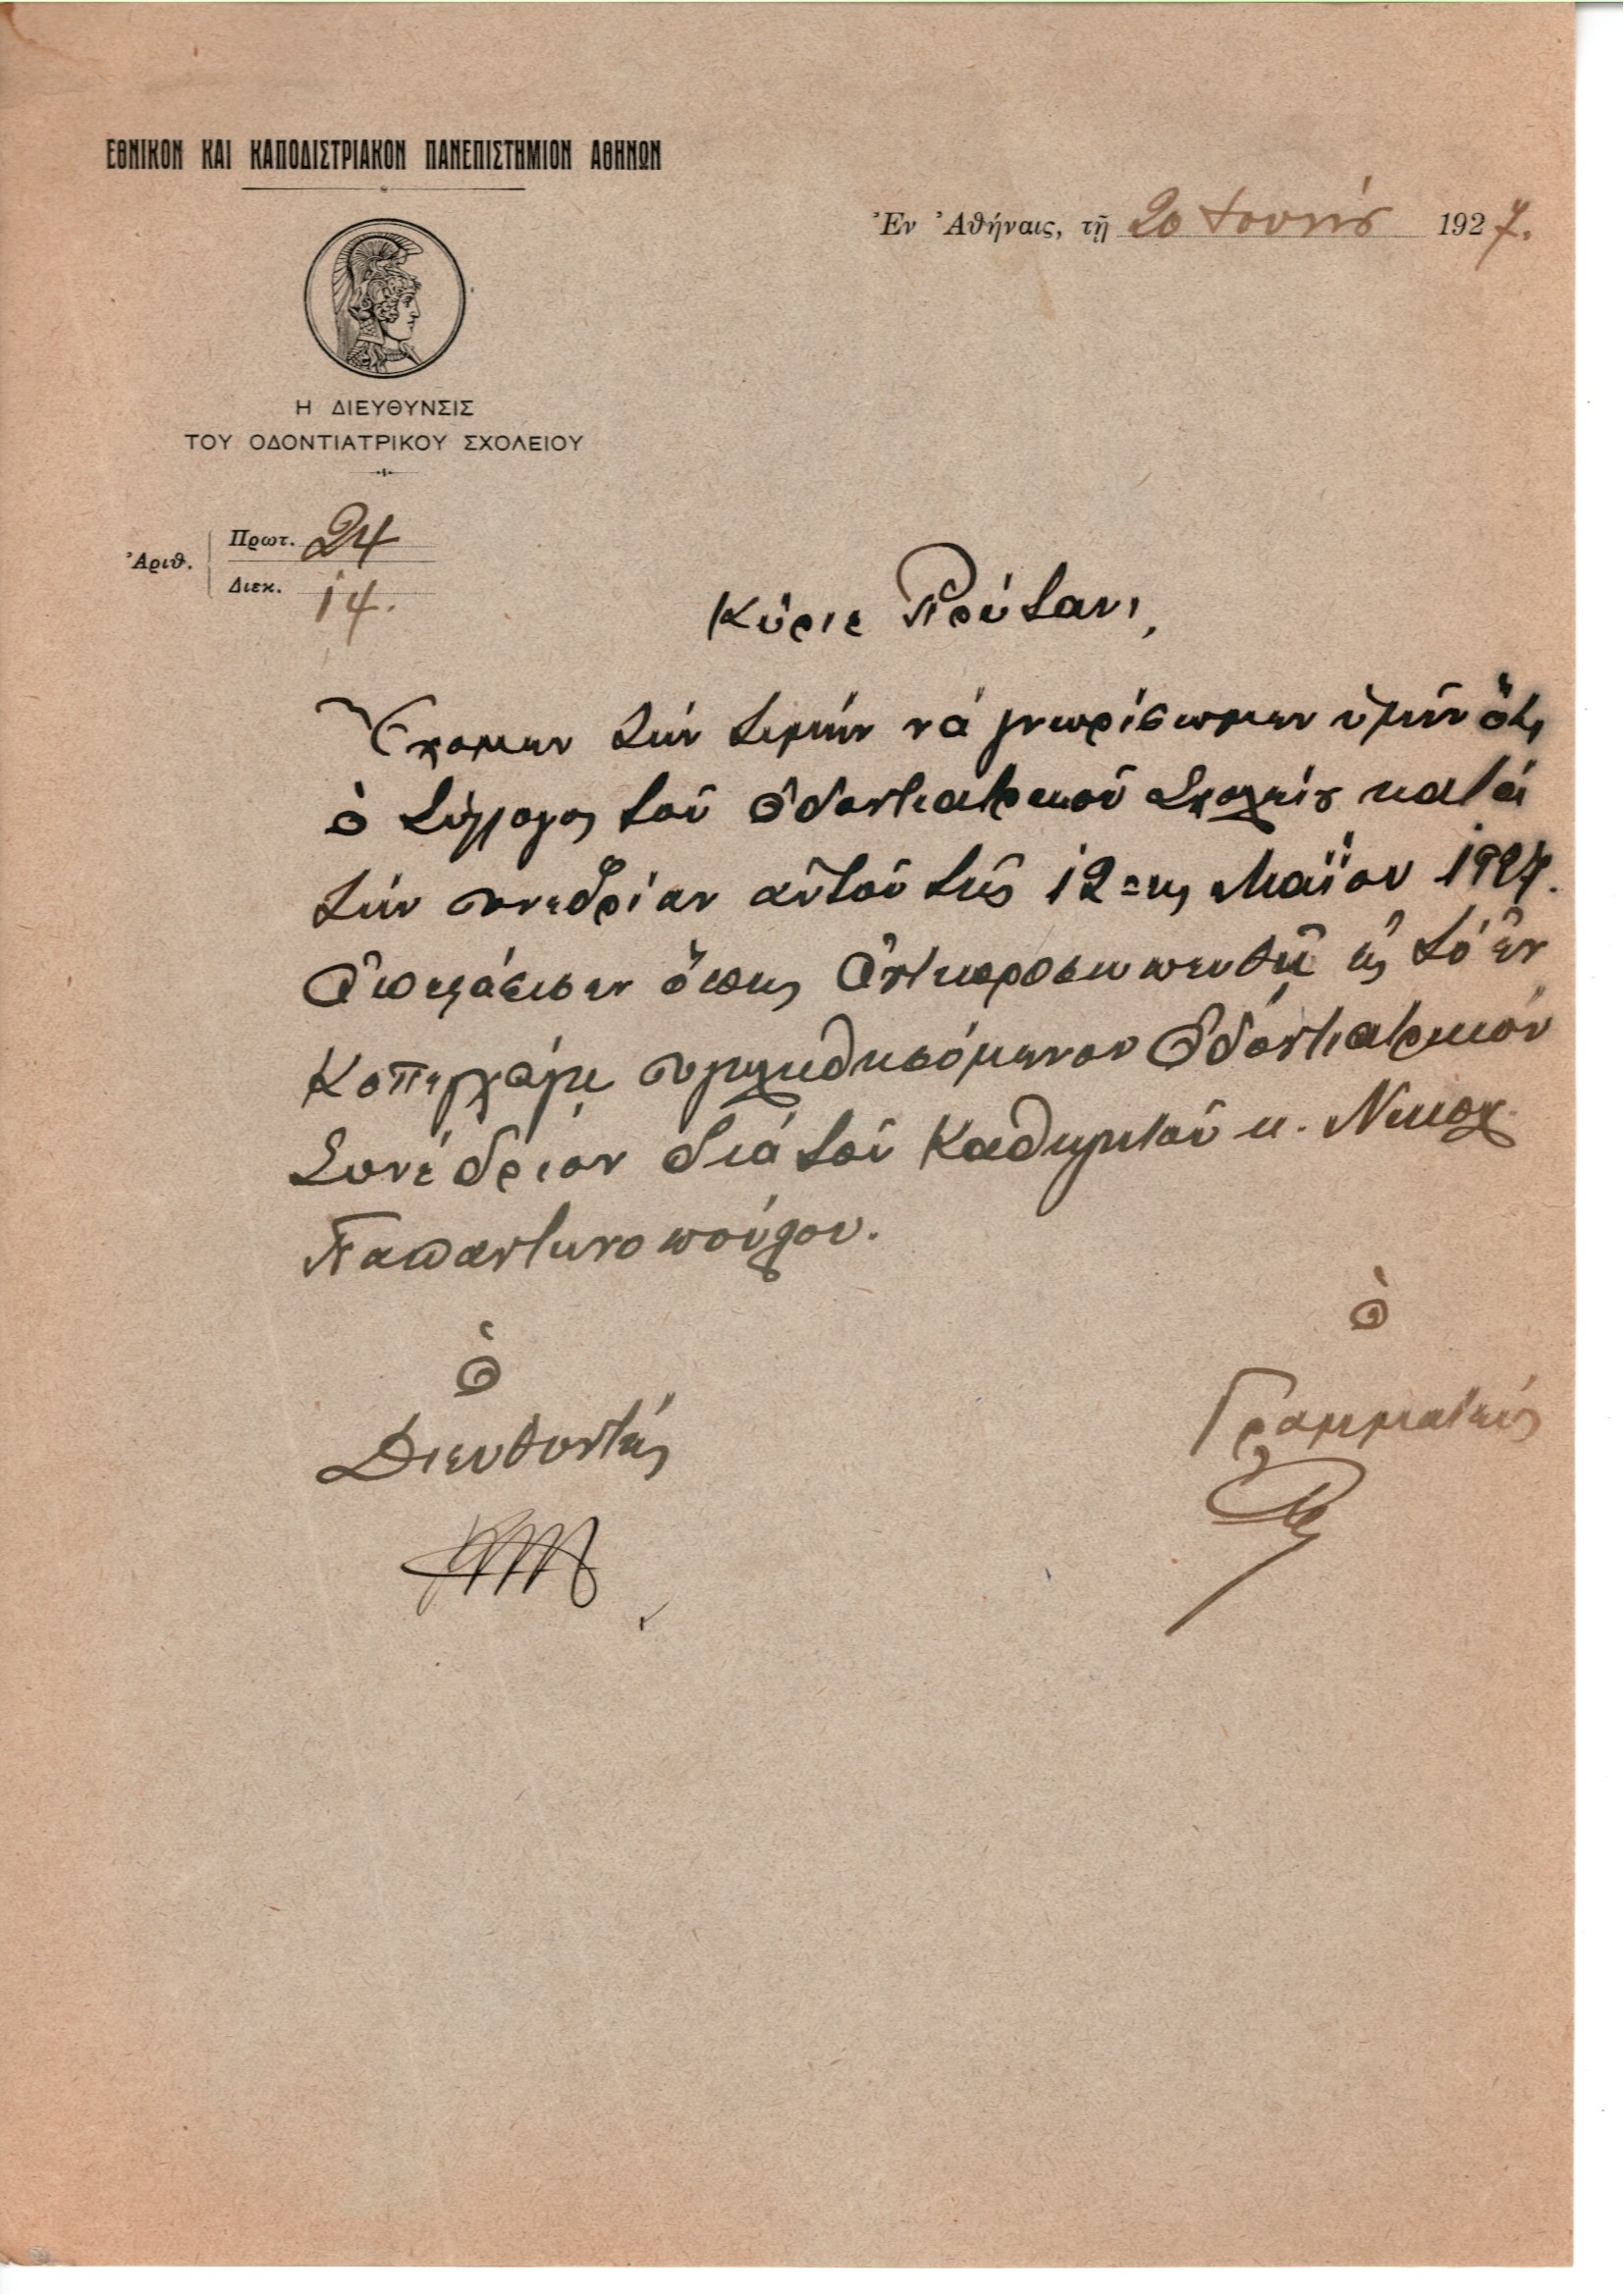 ΕΘΝΙΚΟΝ ΚΑΙ ΚΑΠΟΔΙΣΤΡΙΑΚΟΝ ΠΑΝΕΠΙΣΤΗΜΙΟΝ ΑΘΗΝΩΝ
Ἐν Ἀθήναις, τῇ 20 Ἰουνίου 1927.
Η ΔΙΕΥΘΥΝΣΙΣ
ΤΟΥ ΟΔΟΝΤΙΑΤΡΙΚΟΥ ΣΧΟΛΕΙΟΥ
Ἀριθ.
Πρωτ. 24
Διεκ. 14.
Κύριε Πρύτανι,
Ἔχομεν τὴν τιμὴν νὰ γνωρίσωμεν ὑμῖν ὅτι
ὁ Σύλλογος τοῦ Ὀδοντιατρικοῦ Σχολείου κατὰ
τὴν συνεδρίαν αὐτοῦ τῆς 12ης Μαΐου 1927.
Ἀπεφάσισεν ὅπως Ἀντιπροσωπευθῇ εἰς τὸ ἐν
Κοπεγχάγῃ συγκληθησόμενον Ὀδοντιατρικὸν
Συνέδριον διὰ τοῦ Καθηγητοῦ κ. Νικολ.
Παπαντωνοπούλου.
ὁ
Διευθυντὴς
ὁ
Γραμματεὺς